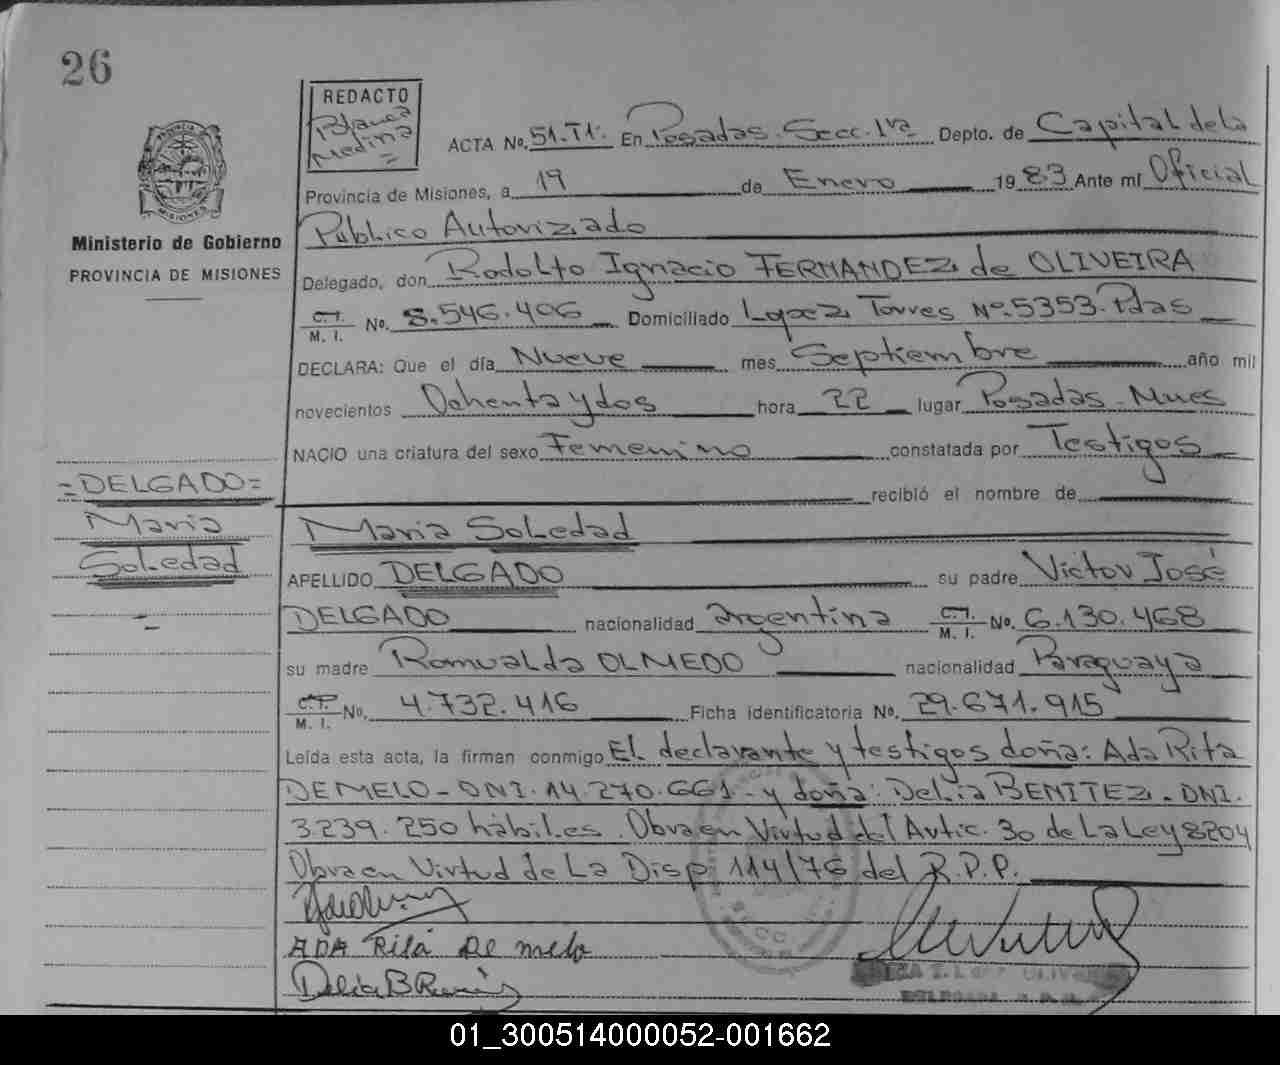 26
REDACTO
Blanca
Medina
PROVINCIA DE
MISIONES
Ministerio de Gobierno
PROVINCIA DE MISIONES
ACTA No. 51.T1: En Posadas. Secc. 1ra Depto. de Capital de la
Provincia de Misiones, a 19 de Enero 1983 Ante mí Oficial
Público Autorizado
Delegado, don Rodolfo Ignacio FERNANDEZ de OLIVEIRA
C.I. M. I. No. 8.546.406 Domiciliado Lopez Torres Nº.5353.Pdas
DECLARA: Que el día Nueve mes Septiembre año mil
novecientos Ochenta y dos hora 22 lugar Posadas - Mnes
NACIO una criatura del sexo Femenino constatada por Testigos
recibió el nombre de
=DELGADO=
Maria
Soledad
Maria Soledad
APELLIDO DELGADO su padre Victor José
DELGADO nacionalidad argentina C.I. M. I. No. 6.130.468
su madre Romualda OLMEDO nacionalidad Paraguaya
C.P. M. I. No. 4.732.416 Ficha identificatoria No. 29.671.915
Leída esta acta, la firman conmigo El declarante y testigos doña: Ada Rita
DE MELO - DNI. 14.270.661 - y doña: Delia BENITEZ. DNI.
3239.250 hábiles. Obra en Virtud del Artic. 30 de La Ley 8204
Obra en Virtud de La Disp. 114/76 del R.P.P.
ADA Rita de melo
Delia B
01_300514000052-001662